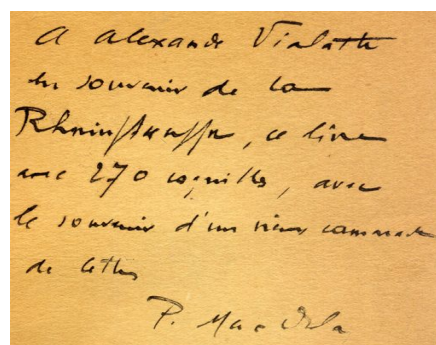 A Alexandre Vialatte
en souvenir de la
Rheinstrasse, ce livre
avec 270 coquilles, avec
le souvenir d'un vieux camarade
de lettres
P. Mac Orlan